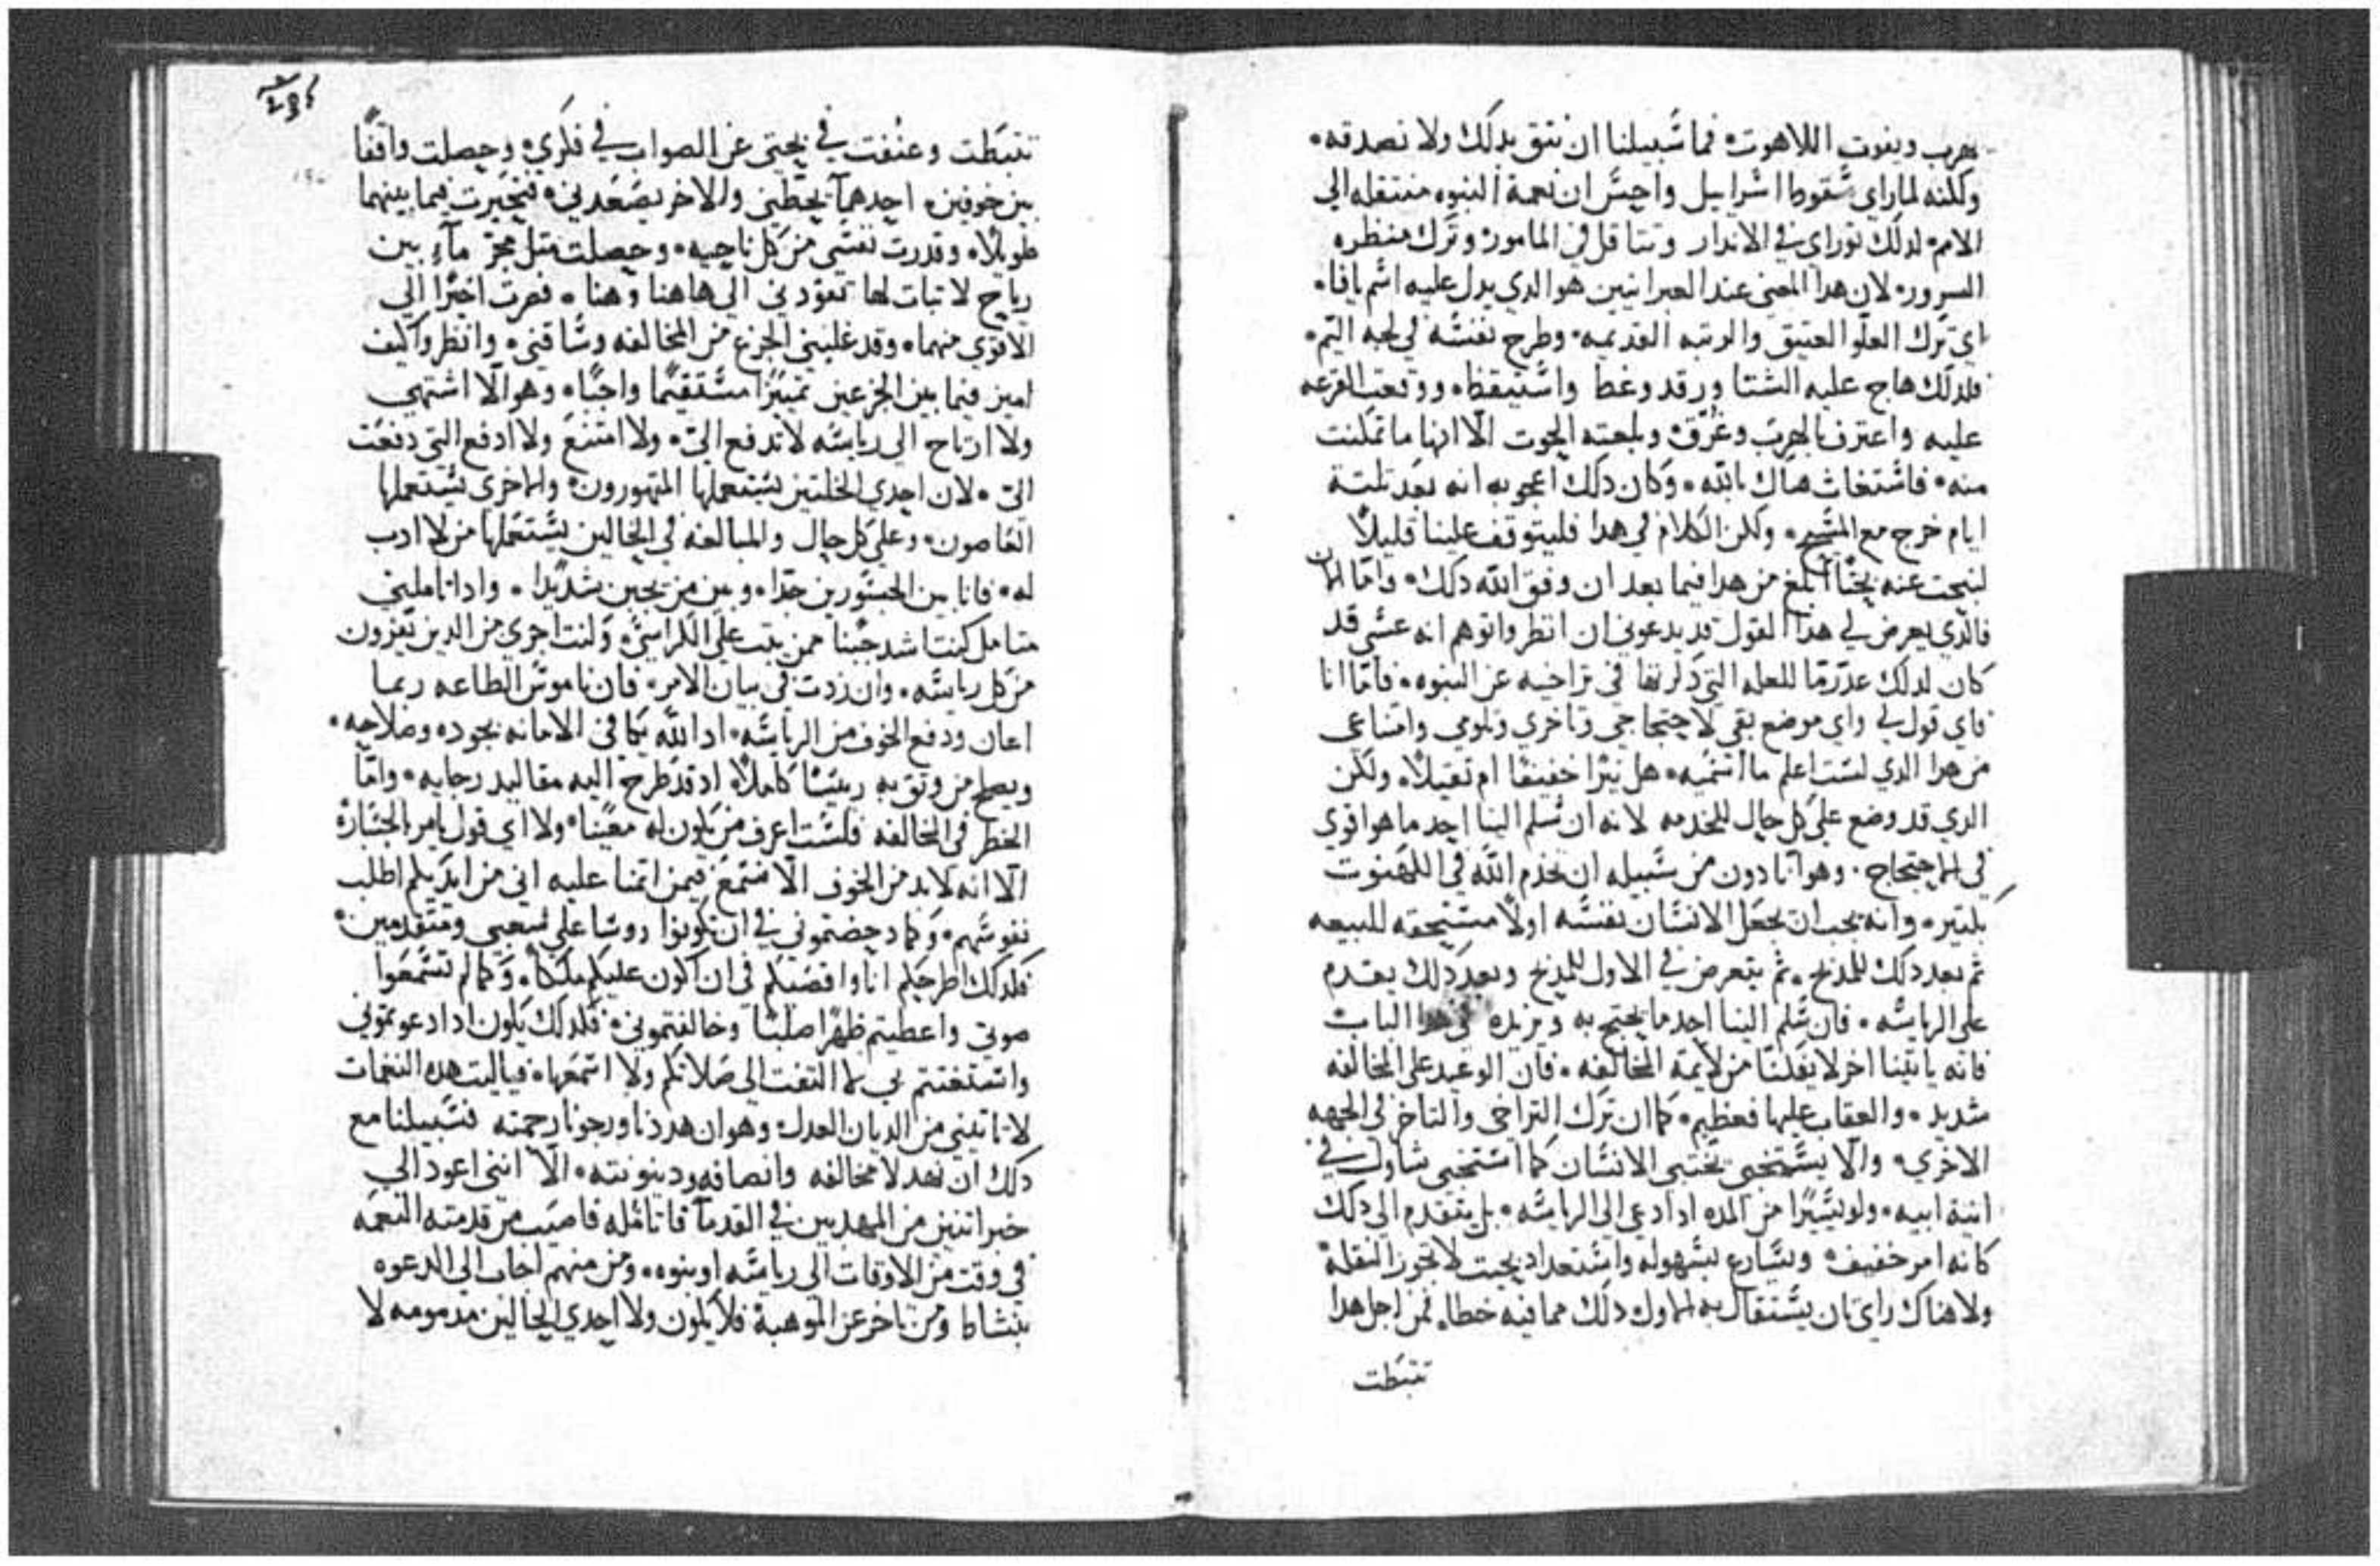 يهرب ويفوت اللاهوت فما سبيلنا ان نثق بدلك ولا نصدقه
ولكنه لما راي سقوط اسراييل واحس ان نعمة النبوه منتقله الي
الامم لدلك توراي في الاندار وتتاقل في المامور وترك منظره
السرور لان هدا المعني عند العبرانيين هو الدي يدل عليه اسم يافا
اي ترك العلو العتيق والرتبه القديمه وطرح نفسه في لجة اليم
فلدلك هاج عليه الشتا ورقد وغط واستيقظ ووقعت القرعه
عليه واعترف بالهرب وغرق وبلعته الحوت الا انها ما تمكنت
منه فاستغاث هناك بالله وكان دلك اعجوبه انه بعد تلتة
ايام خرج مع المسيح ولكن الكلام في هدا فليتوقف علينا قليلا
لنبحت عنه بحتا ابلغ من هدا فيما بعد ان وفق الله دلك واما الان
فالدي يعرض لي هدا القول قد يدعوني ان انظر واتوهم انه عسي قد
كان لدلك عدر ما للعله التي دكرتها في تراخيه عن النبوه فاما انا
فاي قول لي واي موضع بقي لاحتجاجي وتاخري وتلومي وامتناعي
من هدا الدي لست اعلم ما اسميه هل نيرا خفيفا ام تقيلا ولكن
الدي قد وضع علي كل حال للخدمه لانه ان سلم الينا احد ما هو اقوي
في الاحتجاج وهو انا دون من سبيله ان يخدم الله في الكهنوت
بكتير وانه يجب ان يجعل الانسان نفسه اولا مستحقه للبيعه
ثم بعد دلك للمدبح ثم يتعرض في الاول للمدبح وبعد دلك يقدم
علي الرياسه فان سلم الينا احد ما يحتج به ويزيده في هدا الباب
فانه ياتينا اخر لا يفلتنا من لايمة المخالفه فان الوعيد علي المخالفه
شديد والعقاب عليها فعظيم كما ان ترك التراخي والتاخر في الجهه
الاخري والا يستخفي يختبي الانسان كما استخفي شاول في
انية ابيه ولو يسيرا من المده ادا دعي الي الرياسه بل يتقدم الي دلك
كانه امر خفيف ويسارع بسهوله واستعداد بحيت لا تجوز النقلة
ولا هناك راي تان يستقال به الاول دلك مما فيه خطا فمن اجل هدا
تتبطت
تتبطت وعنفت في بحتي عن الصواب في فكري وحصلت واقفا
بين خوفين احدهما يحطني والاخر يصعدني فتحيرت فيما بينهما
طويلا وقدرت نفسي من كل ناحيه وحصلت متل مجر مآء بين
رياح لا تبات لها تقودني الي هاهنا وهنا فصرت اخيرا الي
الاقوي منهما وقد غلبني الجزع من المخالفه وساقني وانظروا كيف
اميز فيما بين الجزعين تمييزا مستقيما واجبا وهو الا اشتهي
ولا ارتاح الي رياسه لا تدفع الي ولا امتنع ولا ادفع التي دفعت
الي لان احدي الخلتين يستعملها المتهورون والاخري يستعملها
العاصون وعلي كل حال والمبالغه في الحالين يستعملها من لا ادب
له فانا بين الجسورين جدا وبين من يجبن شديدا وادا تاملني
متامل كنت اشد جبنا ممن يتب علي الكراسي وكنت اجري من الدين يفزون
من كل رياسه وان زدت في بيان الامر فان ناموس الطاعه ربما
اعان ودفع الخوف من الرياسه اد الله يكافي الامانه بجوده وصلاحه
ويصلح من وتق به رييسا كاملا اد قد طرح اليه مقاليد رجايه واما
الخطر في المخالفه فلست اعرف من يكون له معينا ولا اي قول يامر بالجساره
الا انه لا بد من الخوف الا نستمع فيمن اتمنا عليه اني من ايديكم اطلب
نفوسهم وكما دحضتموني في ان تكونوا روسا علي شعبي ومتقدمين
فلدلك اطرحكم انا واقصيكم في ان اكون عليكم ملكا وكما لم تسمعوا
صوتي واعطيتم ظهرا صلبا وخالفتموني فلدلك يكون ادا دعوتموني
واستغتتم بي لا التفت الي صلاتكم ولا استمعها فياليت هده النغمات
لا تاتيني من الديان العدل وهو ان هددنا ورجونا رحمته فسبيلنا مع
دلك ان نعدلا مخالفه وانصافه ودينونته الا انني اعود الي
خبر اتنين من المهدبين في القدما فاتامله فاصيب من قدمته النعمه
في وقت من الاوقات الي رياسه او نبوه ومن منهم اجاب الي الدعوه
بنشاط ومن تاخر عن الموهبة فلا يكون ولا احدي الحالين مدمومه لا